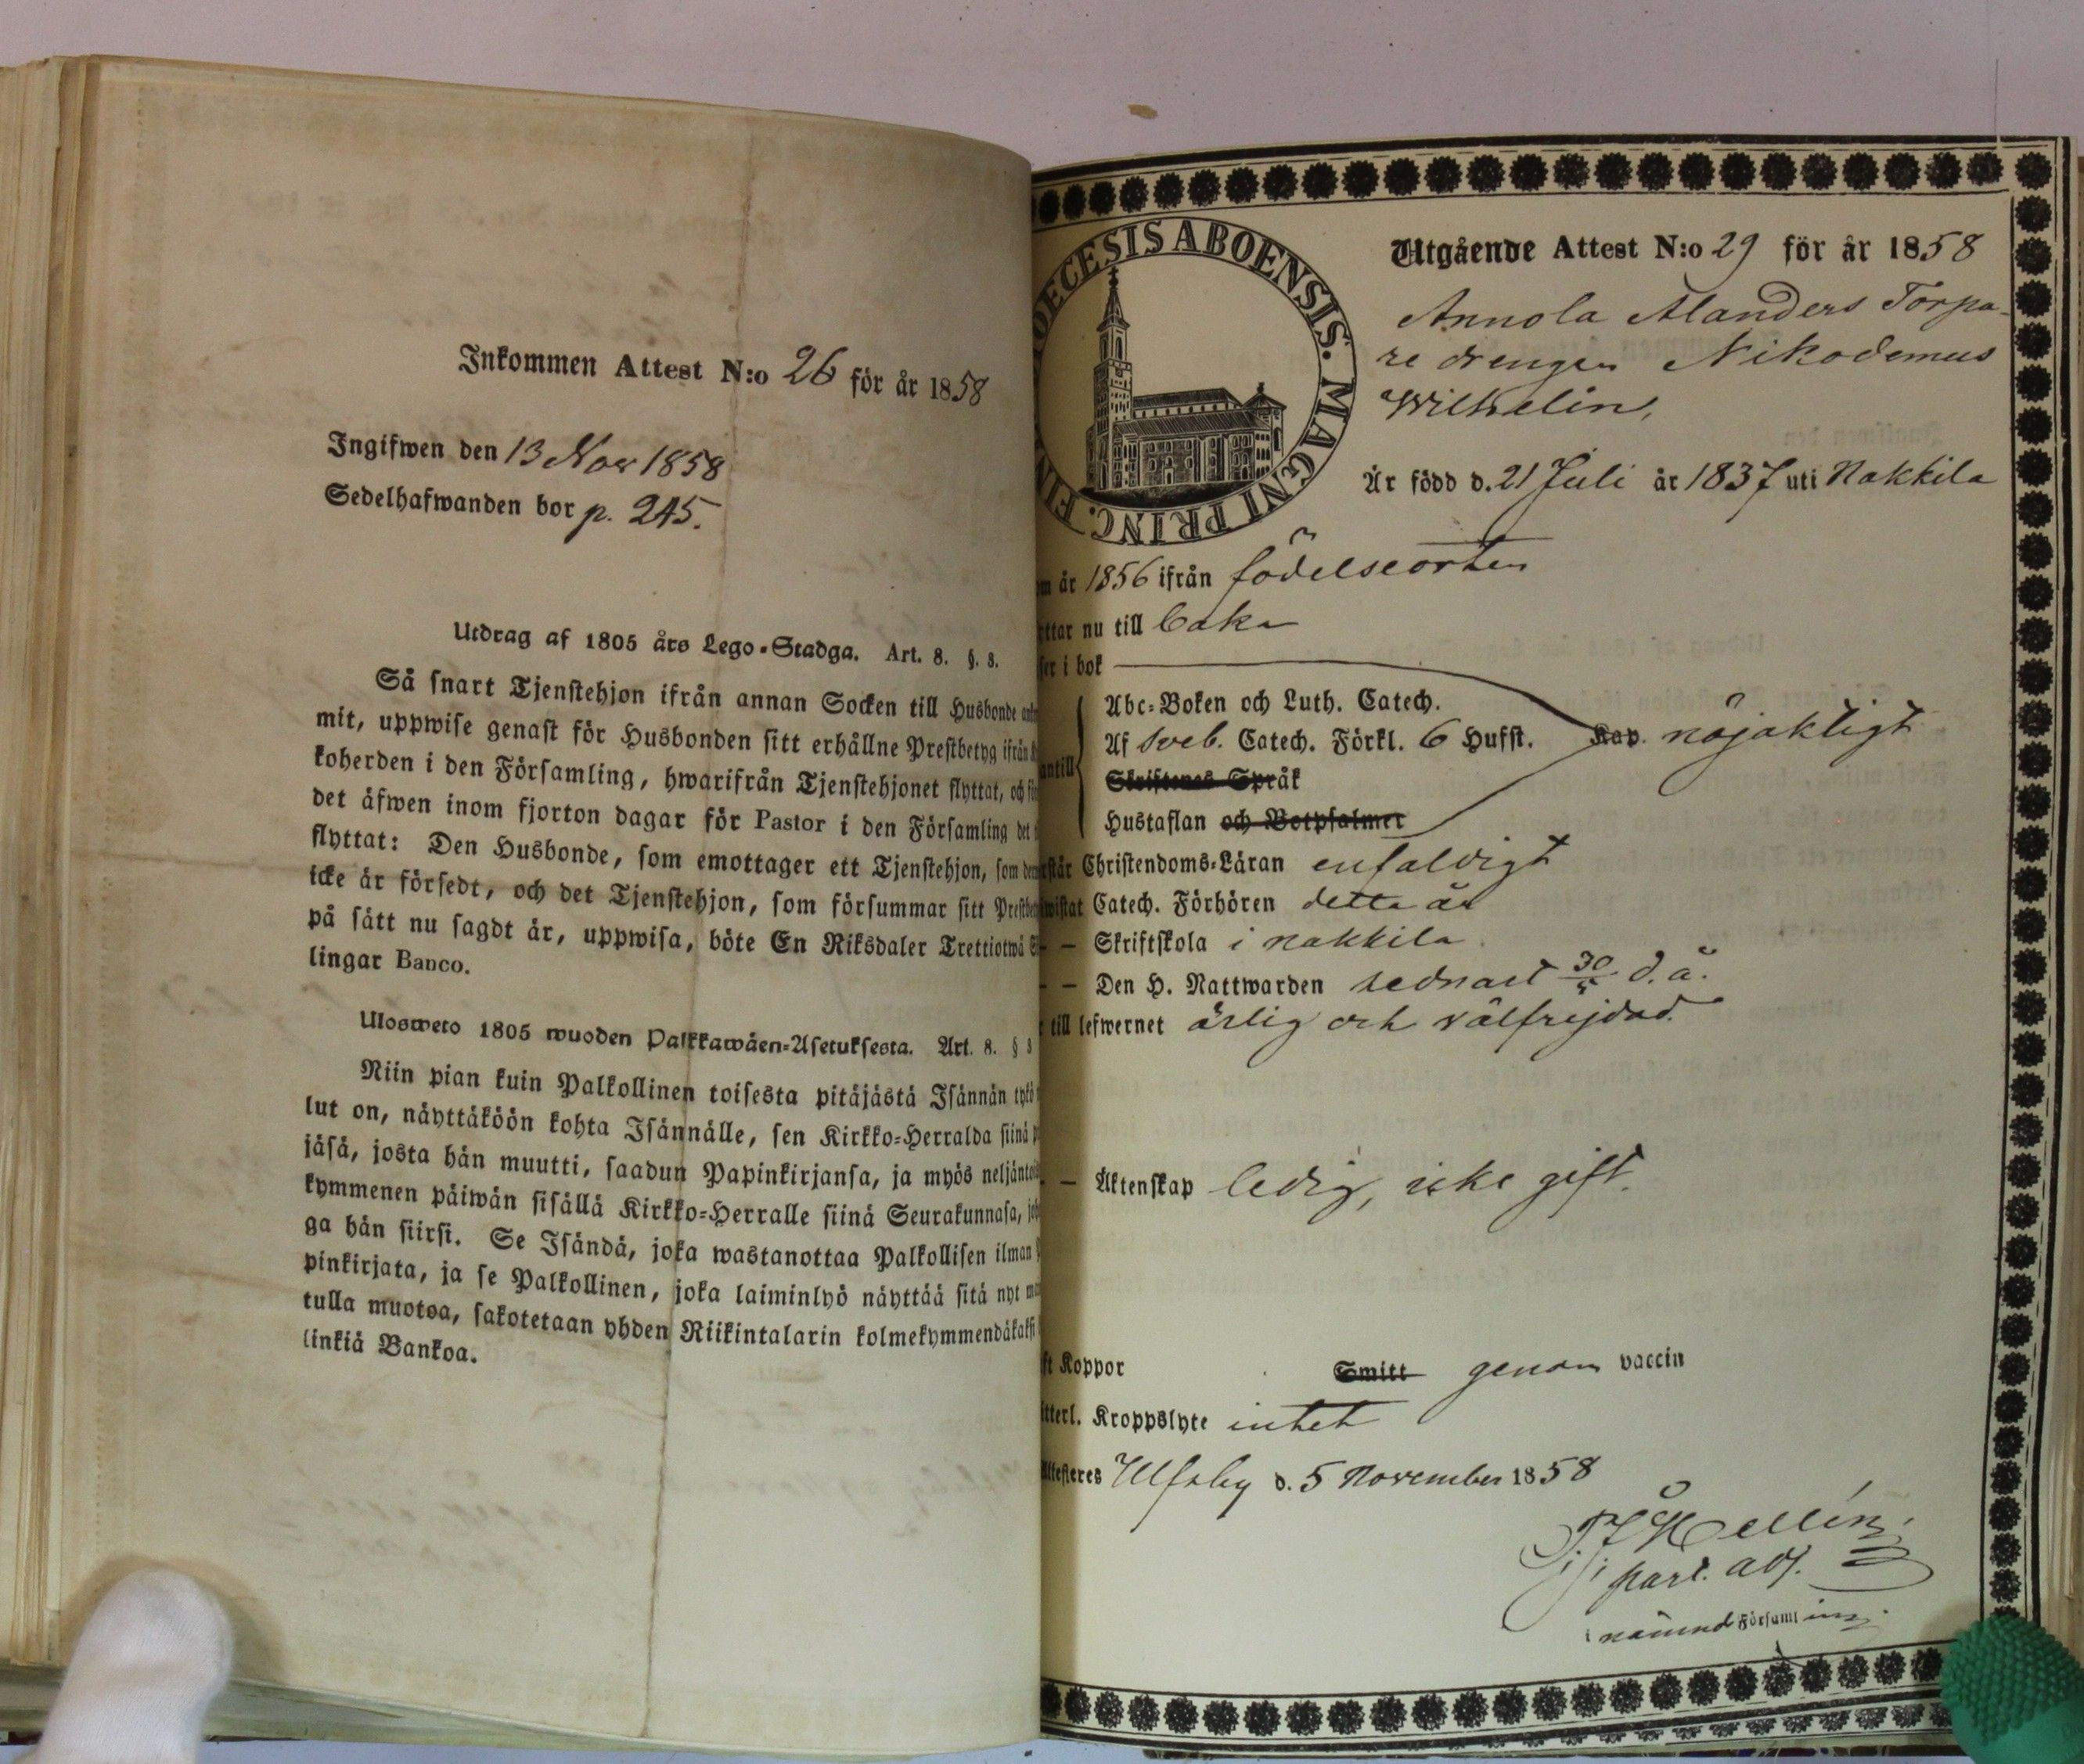 Inkommen Attest N:o 26 för år 1858
Ingifwen den 13 Nov 1858
Sedelhafwanden bor p. 245.
Utdrag af 1805 års Lego-Stadga. Art. 8. §. 3.
Så snart Tjenstehjon ifrån annan Socken till Husbonde
mit, uppwise genast för Husbonden sitt erhållne Prestbetyg ifrån
koherden i den Församling, hwarifrån Tjenstehjonet flyttat, och
det äfwen inom fjorton dagar för Pastor i den Församling det
flyttat: Den Husbonde, som emottager ett Tjenstehjon, som
icke är försedt, och det Tjenstehjon, som försummar sitt
på sätt nu sagdt är, uppwisa, böte En Riksdaler Trettiotwå
lingar Banco.
Ulosweto 1805 wuoden Palkkawäen-Asetuksesta. Art. 8. § 3
Niin pian kuin Palkollinen toisesta pitäjästä Isännän tykö
lut on, näyttäköön kohta Isännälle, sen Kirkko-Herralda siinä
jäsä, josta hän muutti, saadun Papinkirjansa, ja myös
kymmenen päiwän sisällä Kirkko-Herralle siinä Seurakunnasa,
ga hän siirsi. Se Isändä, joka wastanottaa Palkollisen ilman
pinkirjata, ja se Palkollinen, joka laiminlyö näyttää sitä nyt
tulla muotoa, sakotetaan yhden Riikintalarin kolmekymmendäkaksi
linkiä Bankoa.
DIOECESIS ABOENSIS. MAGNI PRINC. FIN
Utgående Attest N:o 29 för år 1858
Annola Alanders Torpa-
re drengen Nikodemus
Wilhelin,
Är född d. 21 Juli år 1837 uti Nakkila
om år 1856 ifrån födelseorten
ttar nu till baka
ser i bok
Abc-Boken och Luth. Catech.
Af sveb. Catech. Förkl. 6 Hufst. Kap. nöjaktigt
antill
Skriftenes Språk
Hustaflan och Botpsalmer
rstår Christendoms-Läran enfaldigt
wistat Catech. Förhören detta år
— — Skriftskola i Nakkila
— — Den H. Nattwarden sednast 30/5 d. å.
till lefwernet ärlig och välfrejdad.
— Äktenskap ledig, icke gift.
ft Koppor Smitt genom vaccin
tterl. Kroppslyte intet
Attesteres Ulfsby d. 5 November 1858
Hellén
past. adj.
i nämnd Församling.